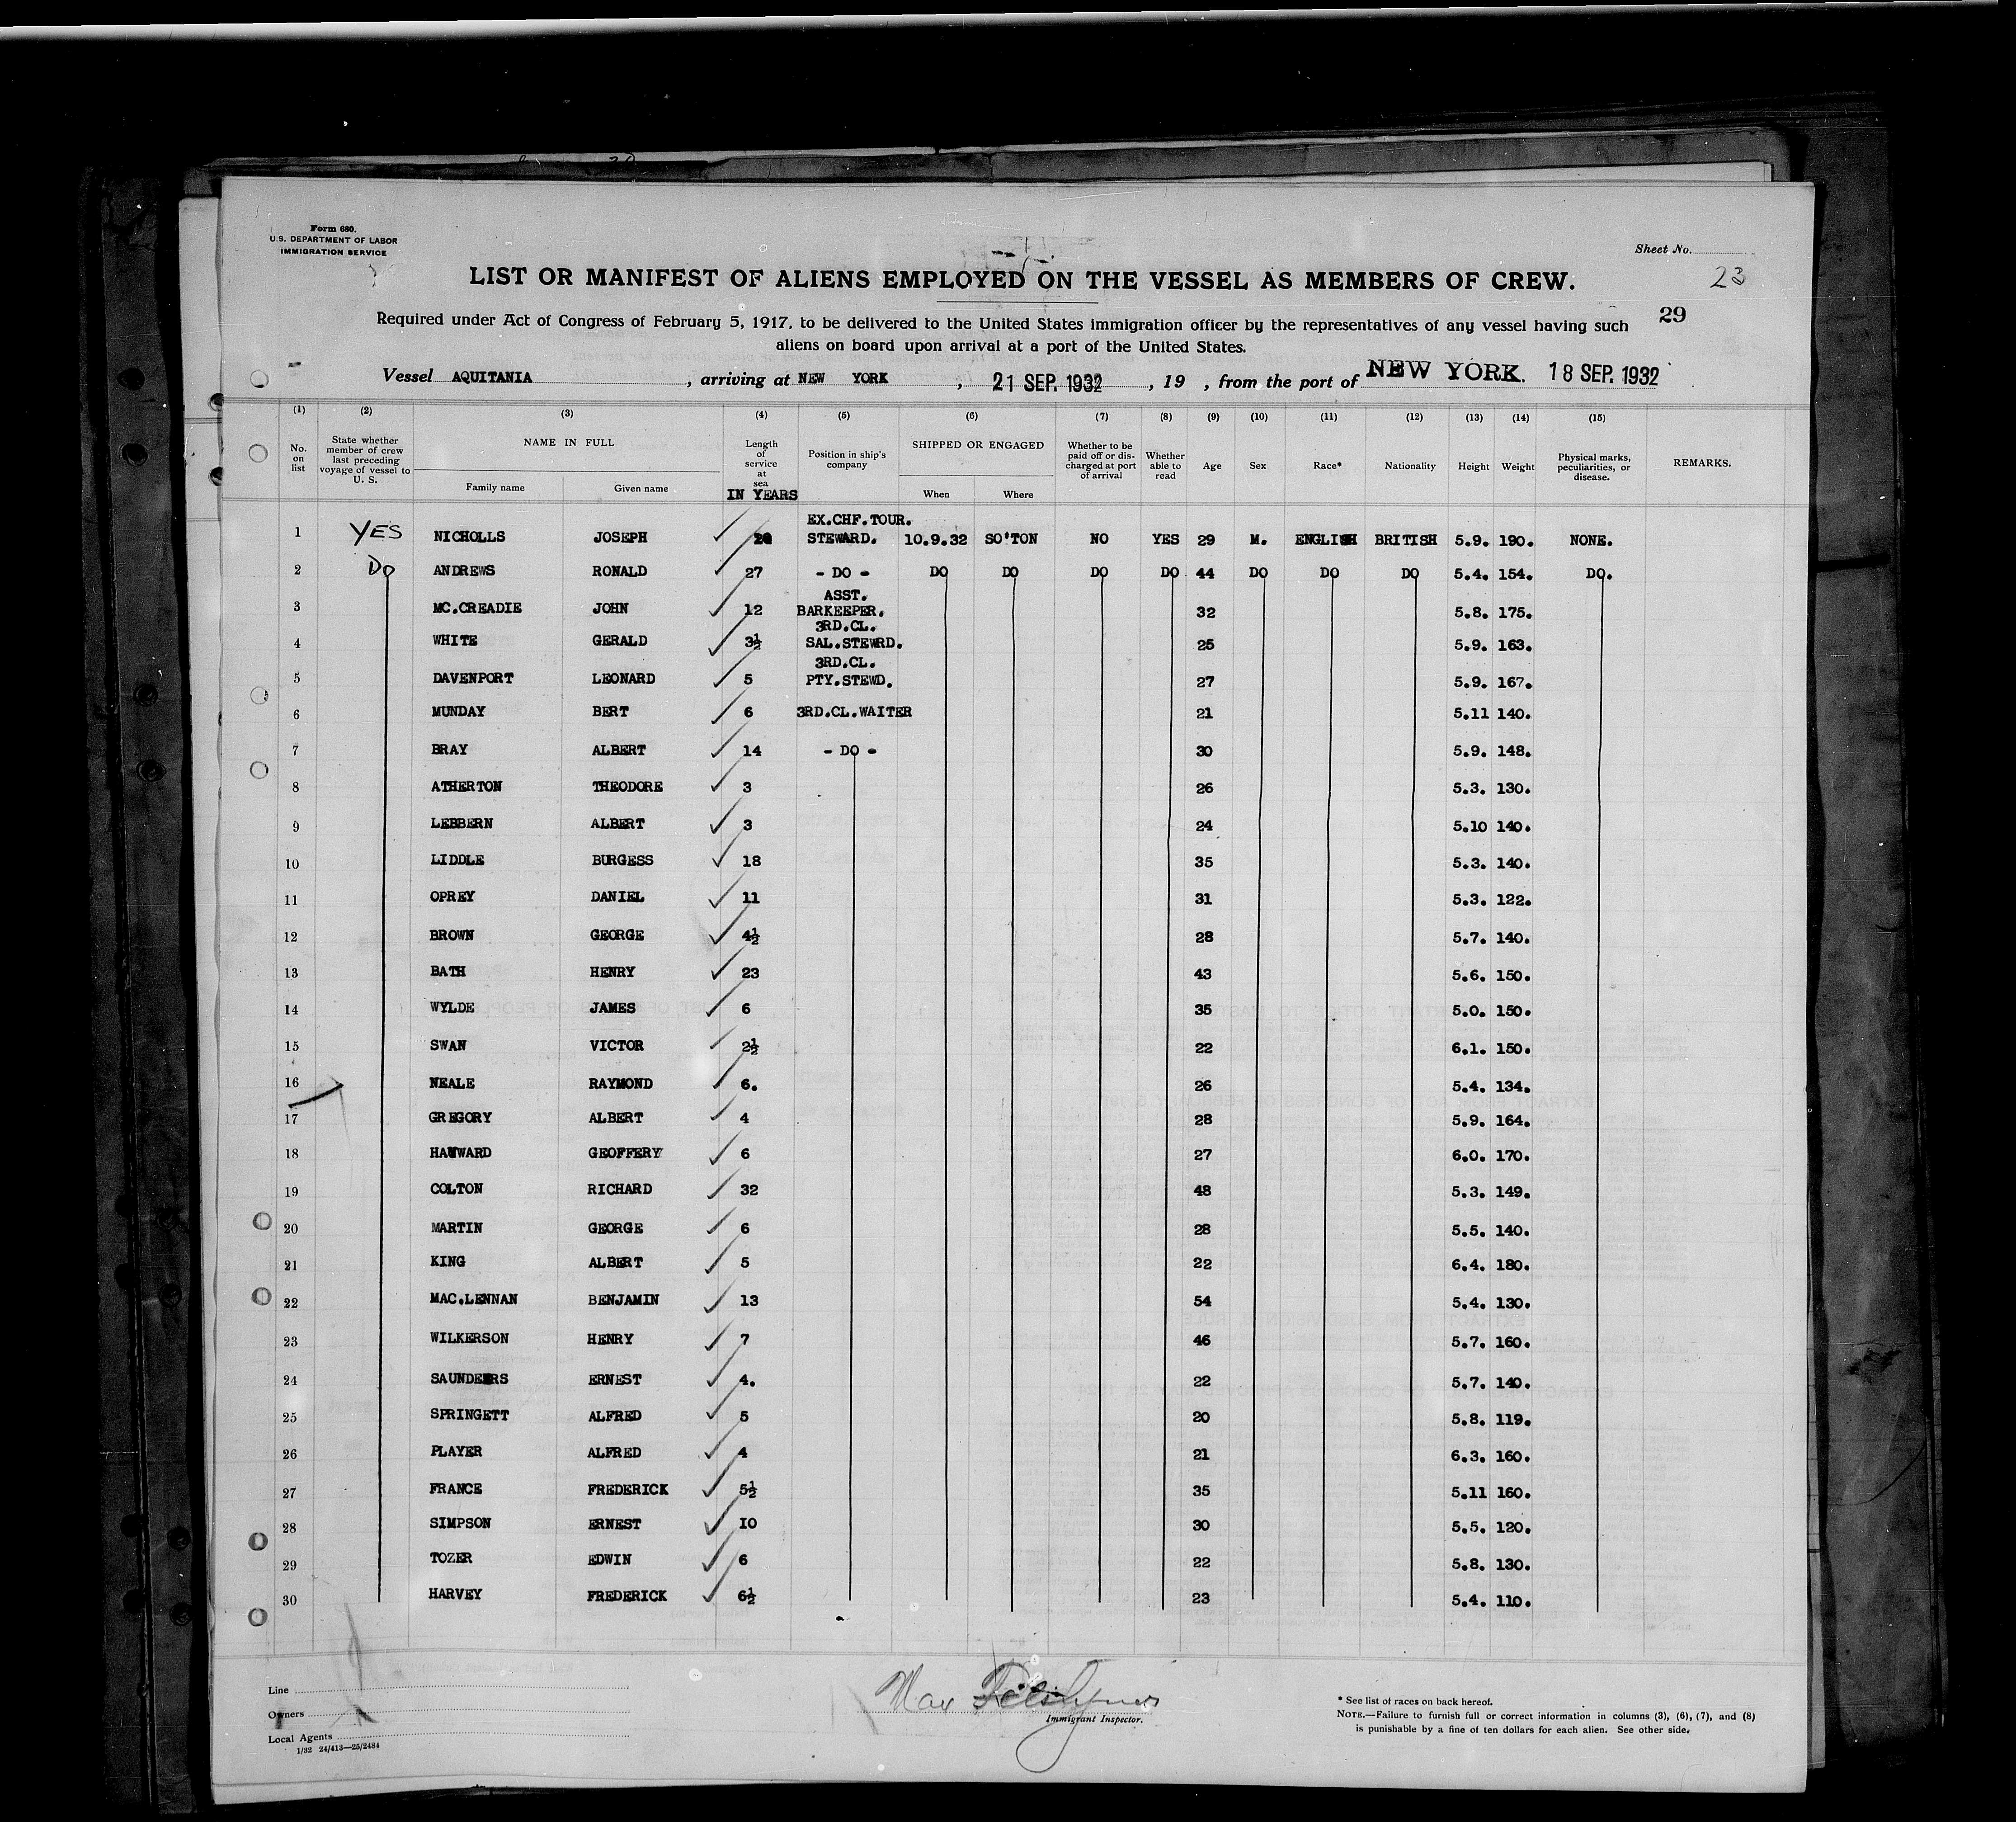 Form 680.
U.S. DEPARTMENT OF LABOR
IMMIGRATION SERVICE
Sheet No.
23
LIST OR MANIFEST OF ALIENS EMPLOYED ON THE VESSEL AS MEMBERS OF CREW.
29
Required under Act of Congress of February 5, 1917, to be delivered to the United States immigration officer by the representatives of any vessel having such
aliens on board upon arrival at a port of the United States.
Vessel AQUITANIA , arriving at NEW YORK , 21 SEP. 1932 , 19 , from the port of NEW YORK. 18 SEP. 1932
(1) (2) (3) (4) (5) (6) (7) (8) (9) (10) (11) (12) (13) (14) (15)
No. on list State whether member of crew last preceding voyage of vessel to U. S. NAME IN FULL Family name Given name Length of service at sea IN YEARS Position in ship's company SHIPPED OR ENGAGED When Where Whether to be paid off or discharged at port of arrival Whether able to read Age Sex Race* Nationality Height Weight Physical marks, peculiarities, or disease. REMARKS.
1 YES NICHOLLS JOSEPH EX.CHF.TOUR. STEWARD. 10.9.32 SO'TON NO YES 29 M. ENGLISH BRITISH 5.9. 190. NONE.
2 Do ANDREWS RONALD 27 - DO - DO DO DO DO 44 DO DO DO 5.4. 154. DO.
3 MC.CREADIE JOHN 12 ASST. BARKEEPER. 32 5.8. 175.
4 WHITE GERALD 3½ 3RD.CL. SAL.STEWRD. 25 5.9. 163.
5 DAVENPORT LEONARD 5 3RD.CL. PTY.STEWD. 27 5.9. 167.
6 MUNDAY BERT 6 3RD.CL.WAITER 21 5.11 140.
7 BRAY ALBERT 14 - DO - 30 5.9. 148.
8 ATHERTON THEODORE 3 26 5.3. 130.
9 LEBBERN ALBERT 3 24 5.10 140.
10 LIDDLE BURGESS 18 35 5.3. 140.
11 OPREY DANIEL 11 31 5.3. 122.
12 BROWN GEORGE 4½ 28 5.7. 140.
13 BATH HENRY 23 43 5.6. 150.
14 WYLDE JAMES 6 35 5.0. 150.
15 SWAN VICTOR 2½ 22 6.1. 150.
16 NEALE RAYMOND 6. 26 5.4. 134.
17 GREGORY ALBERT 4 28 5.9. 164.
18 HAYWARD GEOFFERY 6 27 6.0. 170.
19 COLTON RICHARD 32 48 5.3. 149.
20 MARTIN GEORGE 6 28 5.5. 140.
21 KING ALBERT 5 22 6.4. 180.
22 MAC.LENNAN BENJAMIN 13 54 5.4. 130.
23 WILKERSON HENRY 7 46 5.7. 160.
24 SAUNDERS ERNEST 4. 22 5.7. 140.
25 SPRINGETT ALFRED 5 20 5.8. 119.
26 PLAYER ALFRED 4 21 6.3. 160.
27 FRANCE FREDERICK 5½ 35 5.11 160.
28 SIMPSON ERNEST 10 30 5.5. 120.
29 TOZER EDWIN 6 22 5.8. 130.
30 HARVEY FREDERICK 6½ 23 5.4. 110.
Line
Owners
Local Agents
1/32 24/413—25/2484
Max
Immigrant Inspector.
* See list of races on back hereof.
NOTE.—Failure to furnish full or correct information in columns (3), (6), (7), and (8)
is punishable by a fine of ten dollars for each alien. See other side.